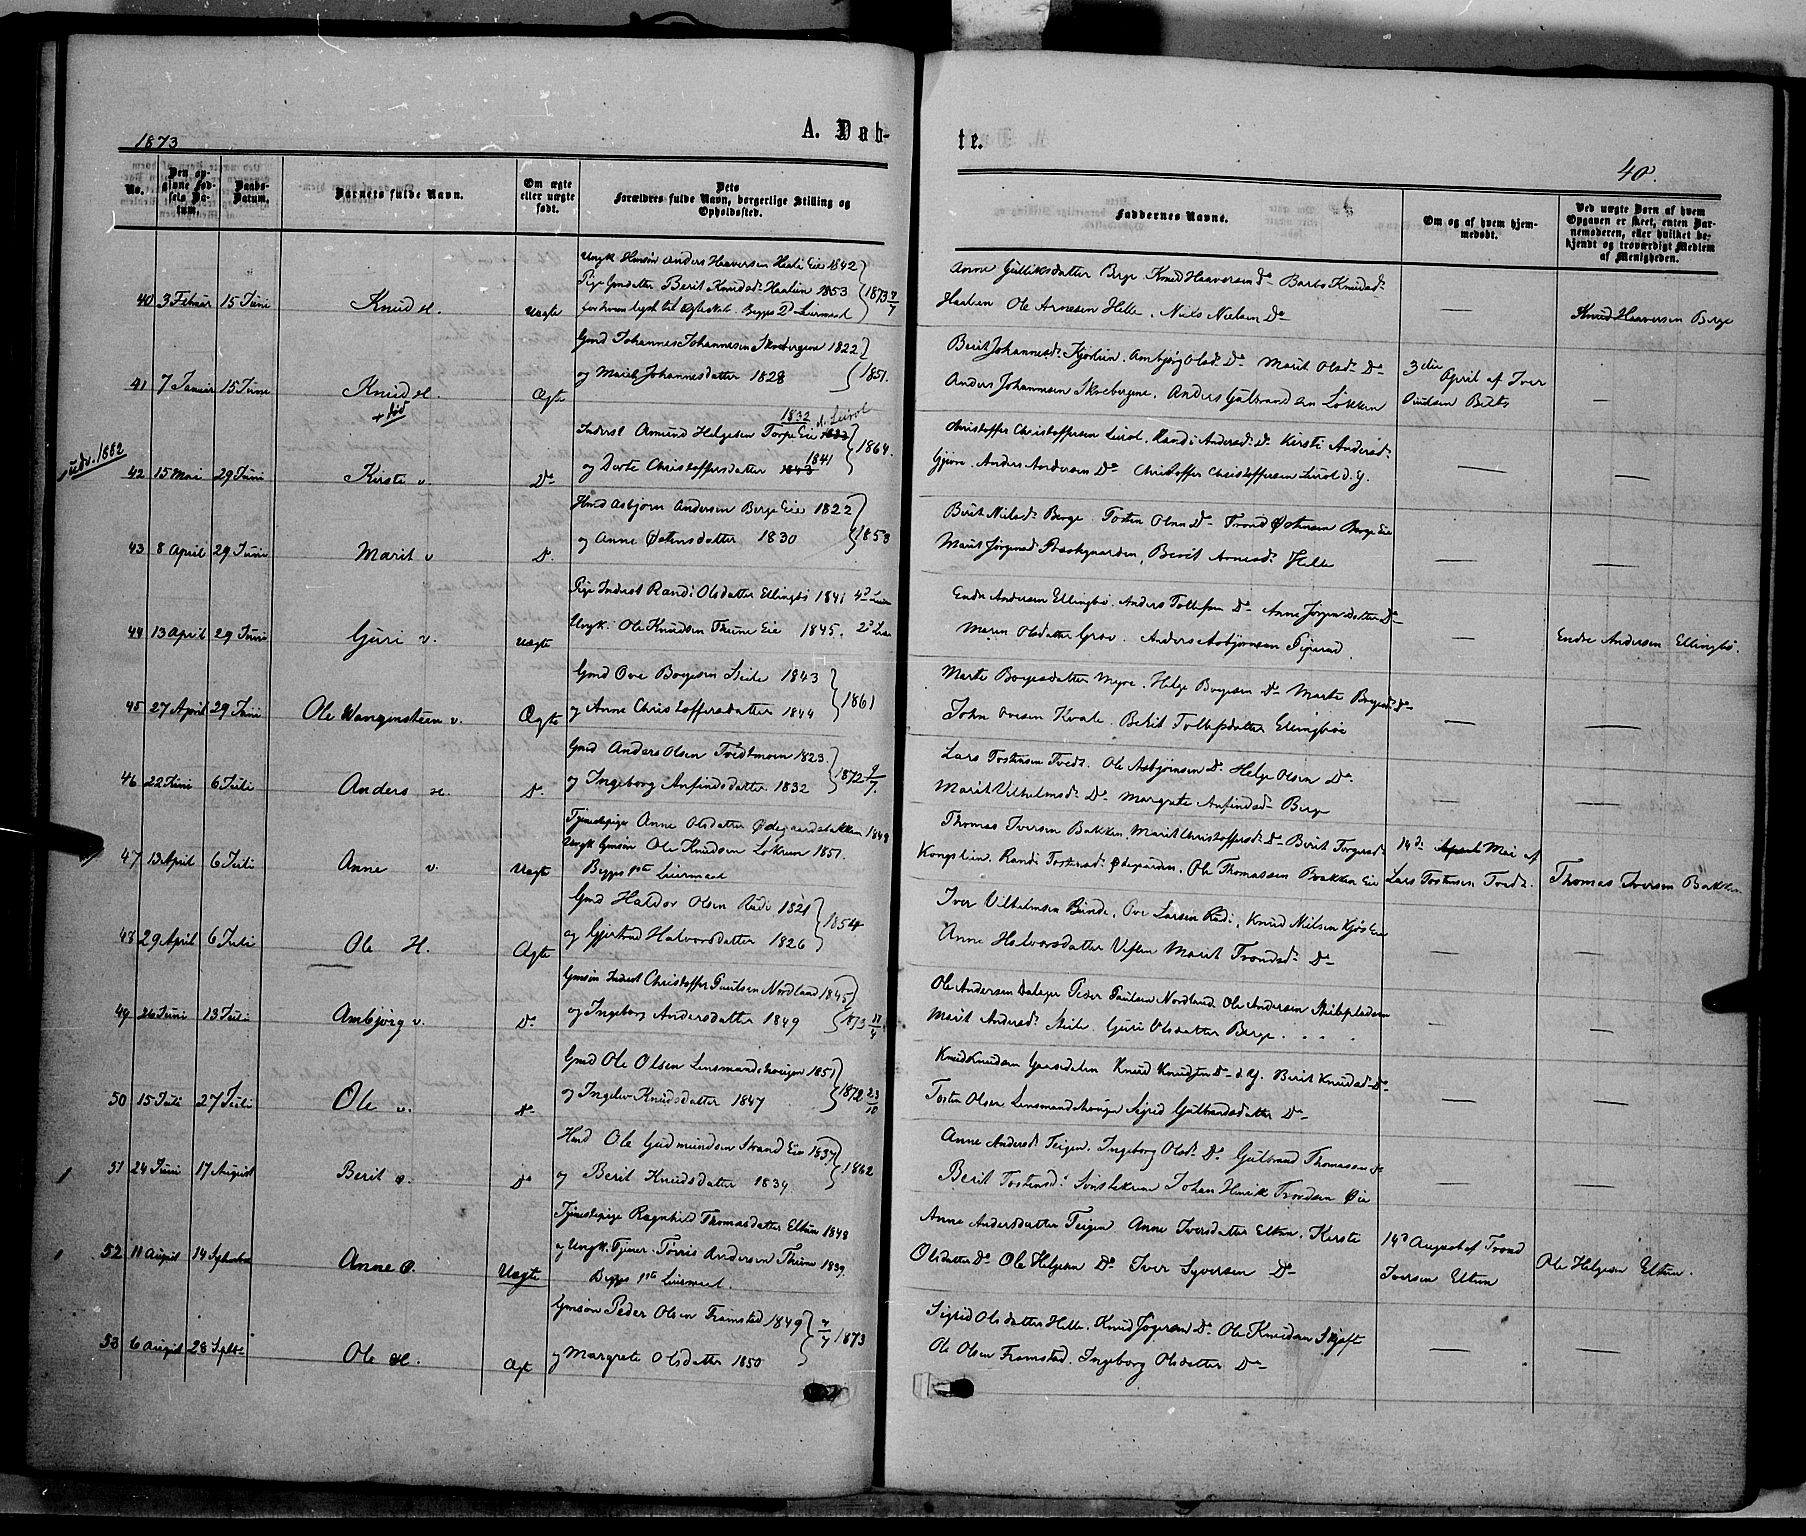 1873
A. Døb-
te.
40.
No.
Den opgivne Fødsels Datum.
Daabs-Datum.
Barnets fulde Navn.
Om ægte eller uægte født.
Dets Forældres fulde Navn, borgerlige Stilling og Opholdssted.
Faddernes Navne.
Om og af hvem hjemmedøbt.
Ved uægte Børn af hvem Opgaven er skeet, enten Barnemoderen, eller hvilket bekjendt og troværdigt Medlem af Menigheden.
40 3 Februar 15 Juni Knud M. Uægte
Ungk. Gmsøn Anders Haaversen Eie 1842
Pige Gmdatter Berit Knudsdr Haalien 1853 1873 7/7
Begges 2d Leiermaal
Anne Gulliksdatter Berge Knud Haaversen Do Barbo Knudsdr
Haalien Ole Arnesen Helle, Niels Nielsen Do
— Knud Haaversen Berge
41 7 Januar 15 Juni Knud M. Ægte
+ død
Gmd Johannes Johannesen Skrebergene 1822
og Marit Johannesdatter 1828 1851.
Berit Johannesdr Kjørlien, Ambjørg Olsdr Do Marit Olsdr Do
Anders Johannesen Skrebergene, Anders Gulbrandsen Løkken
3die April af Iver
Knudsen Belts
—
udv. 1882
42 15 Mai 29 Juni Kirste v Do
Inderst Amund Helgesen Torpe Eie 1832 n. Leirol
og Dorte Christoffersdatter 1843 1841 1864.
Christoffer Christoffersen Leirol, Randi Andersdr Do Kirsti Andersdr
Gjøve, Anders Andersen Do Christoffer Christoffersen Leirol d. y.
— —
43 8 April 29 Juni Marit v D.
Hmd Asbjørn Andersen Berge Eie 1822
og Anne Østensdatter 1830 1853
Berit Nielsdr Berge, Tosten Olsen Do Trond Østensen Berge Eie
Marit Jørgensdr Præstgaarden, Berit Arnesdr Helle
— —
44 13 April 29 Juni Guri v. Uægte
Pige Inderst Randi Olsdatter Ellingbø 1841 4d Leier
Ungk: Ole Knudsen Thune Eie 1845. 2d Leier
Endre Andersen Ellingbø, Anders Tollefsen Do Anne Jørgensdatter Do
Maren Olsdatter Grov, Anders Asbjørnsen
— Endre Andersen Ellingbø.
45 27 April 29 Juni Ole Wangensteen v. Ægte
Gmd Ove Børgesen Leite 1843
og Anne Christoffersdatter 1844 1861
Marte Børgesdatter Myre, Helge Børgesen Do Marte Børgesdr Do
John Ovesen Kvale. Berit Tollefsdatter Ellingbøe
— —
46 22 Juni 6 Juli Anders M. D.
Gmd Anders Olsen Tvedtmoen 1823.
og Ingeborg Anfindsdatter 1832 1872 9/7.
Lars Tostensen Tvedt, Ole Asbjørnsen Do Helge Olsen Do
Marit Vilhelmsdr Do Margrete Anfindsdr Berge
— —
47 13 April 6 Juli Anne v. Uægte
Tjenestepige Anne Olsdatter Ødegaardsbakken 1848
Ungk Gmsøn Ole Knudsen Løkren 1851.
Begges 1ste Leiermaal
Thomas Iversen Bakken, Marit Christoffersdr Do Berit Torgersdr
Kongslien. Randi Tostensdr Ødegaarden. Ole Thomassen Bakken Eie
14de April Mai af
Lars Tostensen Tvedt.
Thomas Iversen Bakken
48 29 April 6 Juli Ole M. Ægte
Gmd Haldor Olsen Rudi 1821
og Gjertrud Halvorsdatter 1826 1854
Iver Vilhelmsen Bunde, Ove Larsen Rudi, Knud Nielsen Kjøs Eie
Anne Halvorsdatter Uflen Marit Trondsdr Do
— —
49 26 Juni 13 Juli Ambjørg v. Do
Gmsøn Inderst Christoffer Guulsen Nordland 1845
og Ingeborg Andersdatter 1849 1873 17/4
Ole Andersen Dalager Peder Paulsen Nordland Ole Andersen Skiteplads
Marit Andersdr Skite. Guri Olsdatter Berge
— —
50 15 Juli 27 Juli Ole v. Do
Gmd Ole Olsen Lensmandshougen 1851
og Ingelev Knudsdatter 1847 1872 23/10
Knud Knudsen Gaasedalen Knud Knudsen Do d. y. Berit Knudsdr Do
Tosten Olsen Lensmandshougen Sigrid Gulbrandsdatter Do
— —
51 24 Juni 17 August Berit v. Do
Hmd Ole Gudmundsen Strand Eie 1837
og Berit Knudsdatter 1839. 1862
Anne Andersdr Teigen, Ingeborg Olsdr Do Gulbrand Thomassen Do
Berit Tostensdr Johan Henrik Trondsen Øie
— —
52 11 August 14 September Anne v. Uægte
Tjenestepige Ragnhild Thomasdatter Eltun 1848
og Ungk. Tjener Torris Andersen Thune 1839.
Begges 1ste Leiermaal.
Anne Andersdatter Teigen Anne Iversdatter Eltun, Kirste
Olsdatter Do Ole Helgesen Do Iver Syversen Do
14d August af Trond
Iversen Eltun
Ole Helgesen Eltun.
53 6 August 28 Septbr Ole M. Ægt
Gmsøn Peder Olsen Framstad 1849
og Margrete Olsdatter 1850 7/7 1873
Sigrid Olsdatter Helle, Knud Jøgersen Do Ole Knudsen Skjefte
Ole Olsen Framstad, Ingeborg Olsdatter Do
— —